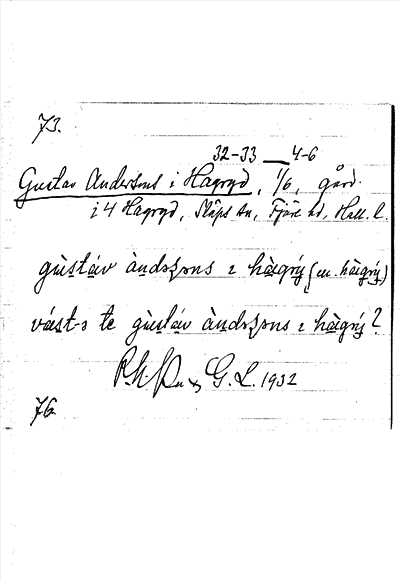 73.
32-33 — 4-6
Gustav Andersons i Hagryd, 1/6, gård.
i 4 Hagryd, Släps sn, Fjäre hd, Hall. l.
gùstáv àndəʂɔns ɪ hàgrý (äv. hàgrý)
väst-ɔ te gùstáv àndəʂɔns ɪ hàgrý?
G. L. 1932
76